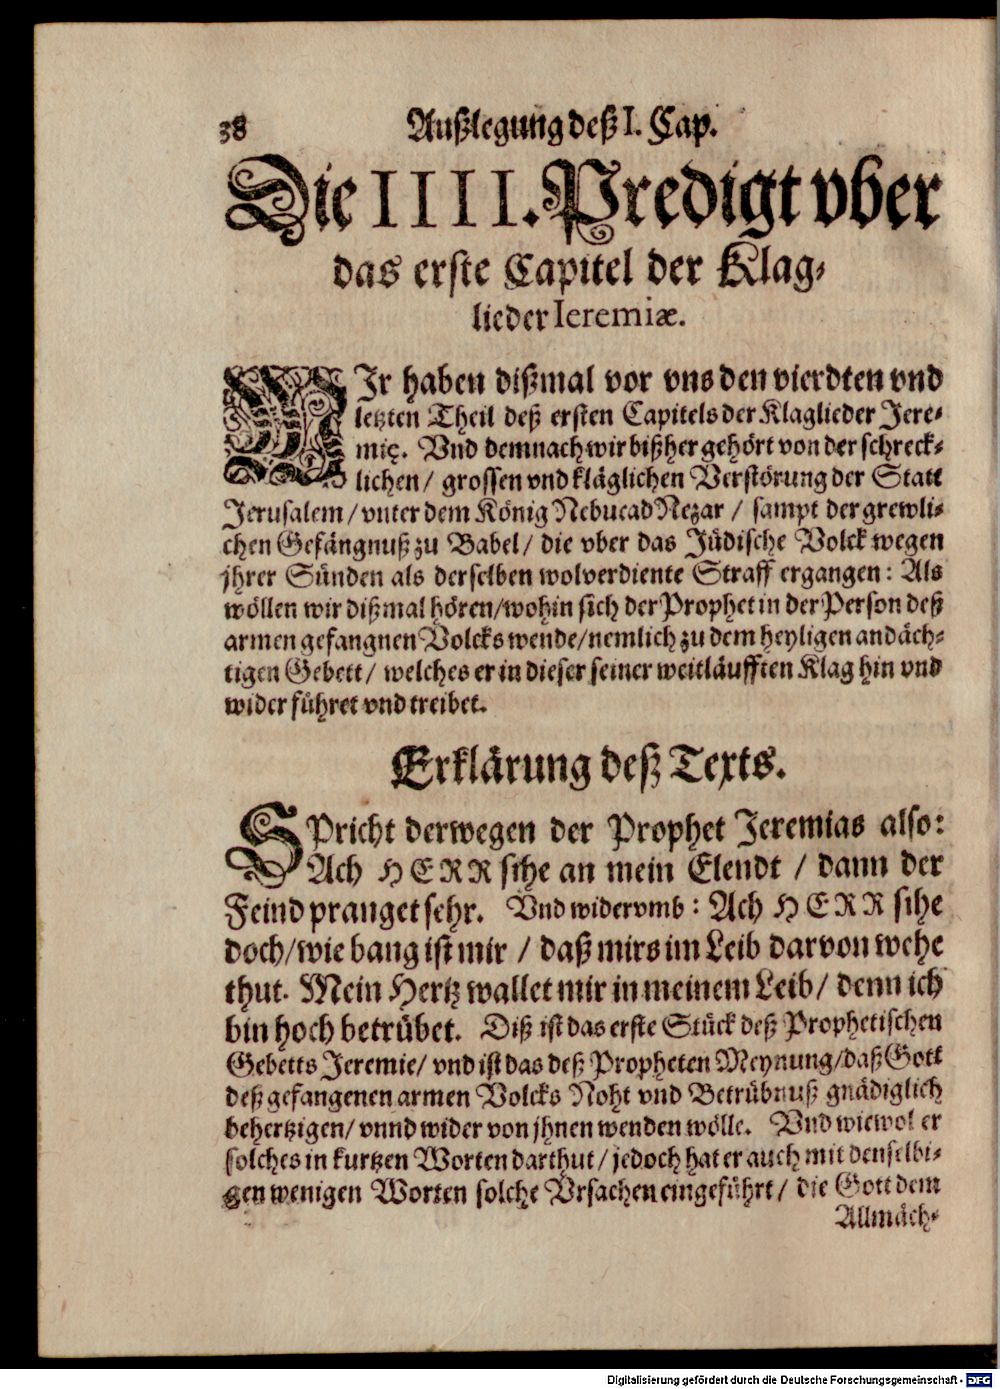 38 Außlegung deß I. Cap.
Die IIII. Predigt vber
das erste Capitel der Klag-
lieder Ieremiæ.
WJr haben dißmal vor vns den vierdten vnd
letzten Theil deß ersten Capitels der Klaglieder Jere-
mię. Vnd demnach wir bißher gehört von der schreck-
lichen / grossen vnd kläglichen Verstörung der Statt
Jerusalem / vnter dem König NebucadNezar / sampt der grewli-
chen Gefängnuß zu Babel / die vber das Jüdische Volck wegen
jhrer Sünden als derselben wolverdiente Straff ergangen: Als
wöllen wir dißmal hören / wohin sich der Prophet in der Person deß
armen gefangnen Volcks wende / nemlich zu dem heyligen andäch-
tigen Gebett / welches er in dieser seiner weitläufften Klag hin vnd
wider führet vnd treibet.
Erklärung deß Texts.
SPricht derwegen der Prophet Jeremias also:
Ach HERR sihe an mein Elendt / dann der
Feind pranget sehr. Vnd widervmb: Ach HERR sihe
doch / wie bang ist mir / daß mirs im Leib darvon wehe
thut. Mein Hertz wallet mir in meinem Leib / denn ich
bin hoch betrübet. Diß ist das erste Stück deß Prophetischen
Gebetts Jeremie / vnd ist das deß Propheten Meynung / daß Gott
deß gefangenen armen Volcks Noht vnd Betrübnuß gnädiglich
behertzigen / vnnd wider von jhnen wenden wölle. Vnd wiewol er
solches in kurtzen Worten darthut / jedoch hat er auch mit denselbi-
gen wenigen Worten solche Vrsachen eingeführt / die Gott dem
Allmäch-
Digitalisierung gefördert durch die Deutsche Forschungsgemeinschaft - DFG